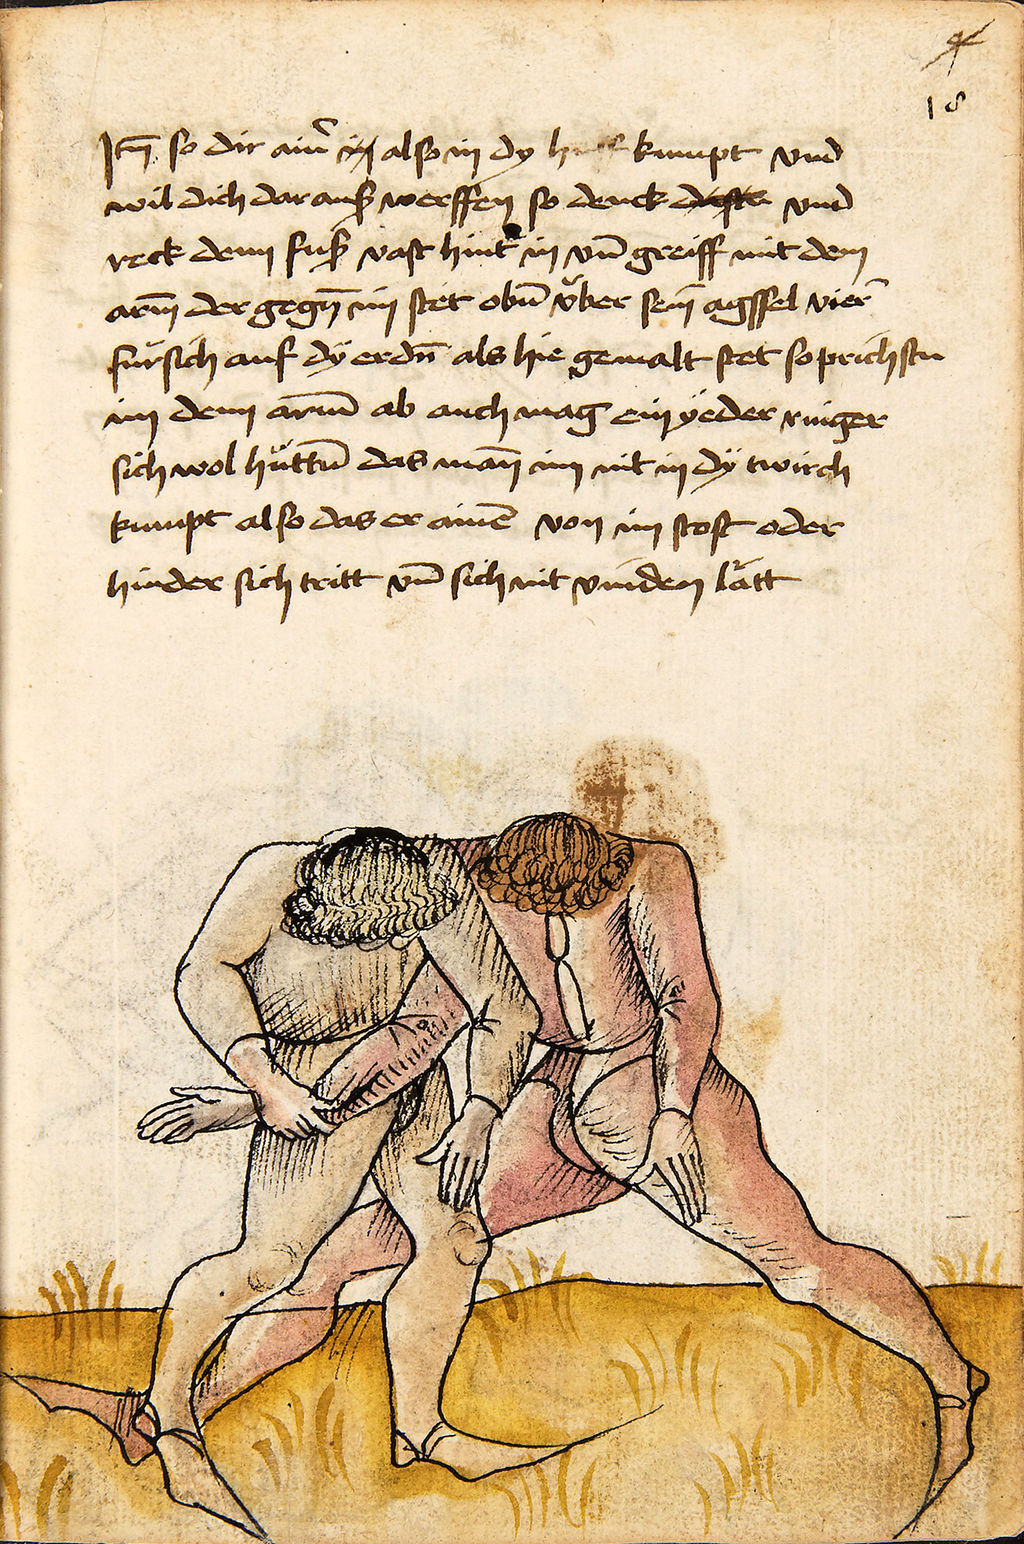 18
Itm̄ so dir ainr̄ also in dy huff kumpt vnd
wil dich dar auß werffen so denck vnd
reck dein fuß vast hint in vn̄ greiff mit dem
arm̄ der gegn̄ im stet obn̄ v̈ber sein̄ agssel vier̄
fürsich auf dÿ erdn̄ als hie gemalt stet so prichstu
im dein arm̄ ab auch mag ein yeder ringer
sich wol hüttn̄ das man̄ im nit in dÿ twirch
kumpt also das er ainē von im stost oder
hinder sich tritt vn̄ sich nit vinden lätt